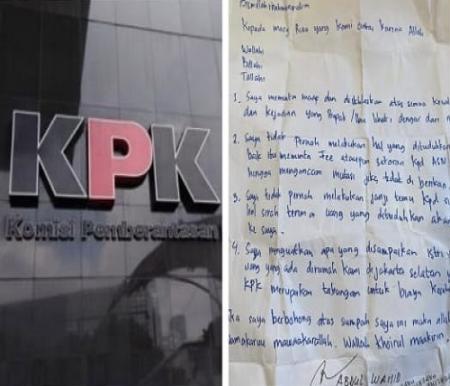 KPK
Komisi Pemberantasan
Bismillahirrahmanirrahim
Kepada masy Riau yang kami cintai karena Allah
Wallahi
Billahi
Tallahi
1. Saya memohon maaf dan atas semua
dan kejadian yang Bapak / Ibu dengar dan
2. Saya tidak Pernah melakukan hal yang dituduhkan
baik itu meminta Fee ataupun setoran Kpd
hingga mengancam mutasi jika tidak di berikan.
3. Saya tidak pernah melakukan janji temu Kpd
serah terima uang yang dituduhkan
ke saya.
4. Saya menguatkan apa yang disampaikan istri
uang yang ada dirumah kami dijakarta selatan
KPK merupakan tabungan untuk biaya
saya berbohong atas sumpah saya ini maka
wamakarallah. Wallahu Khoirul maakirin.
ABDUL WAHID